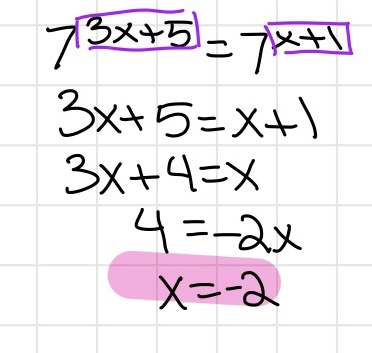 7^(3x+5) = 7^(x+1)
3x+5=x+1
3x+4=x
4=-2x
x=-2